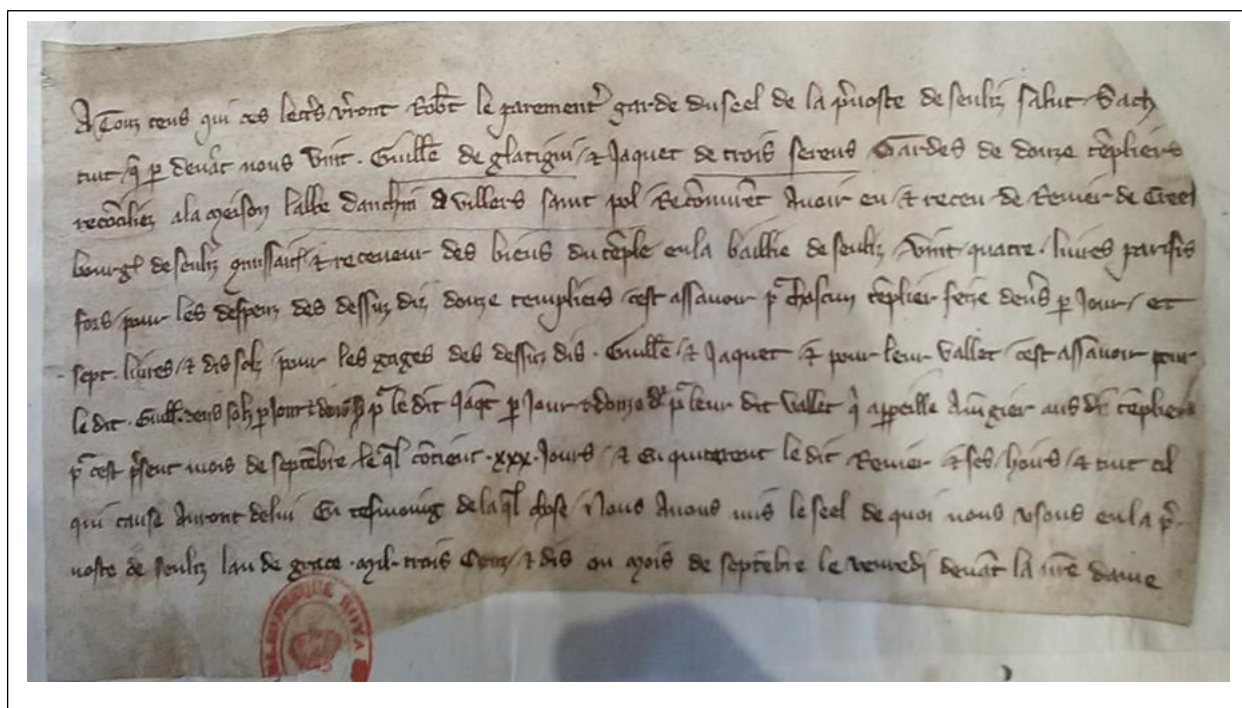 A Touz ceus qui ces lectres verront Robt le parementr garde du seel de la pvoste de senliz salut Sach
tuit q par devat nous vint Guille de glatigni & Jaquet de trois serens Gardes de douze tepliers
recocilez a la meison labbe danchin a villers saint pol Reconurent Avoir eu & receu de Renier de Creel
bourgs de senliz comissaire & receveur des biens du teple en la baillie de senliz vint quatre livres parisis
fors pour les despens des dessuz diz douze templiers cest assavoir pr chascun teplier seze deners par Jour et
sept livres & dis solz pour les gages des dessuz dis Guille & Jaquet & pour leur vallet cest assavoir pour
le dit Guill. par Jour pr le dit Jaqt par Jour & douze dr pr leur dit vallet q appeille A mengier aus dit tepliers
pr cest psent mois de septebre le ql cotient xxx Jours & en quiterent le dit Renier & ses hoirs & tuit cil
qui cause Auront de lui En tesmoing de la ql chose Nous Avons mis le seel de quoi nous usons en la p
voste de senliz lan de grace mil trois Cenz & dis ou mois de septebre le venredi devat la nre dame
BIBLIOTHEQUE ROYA